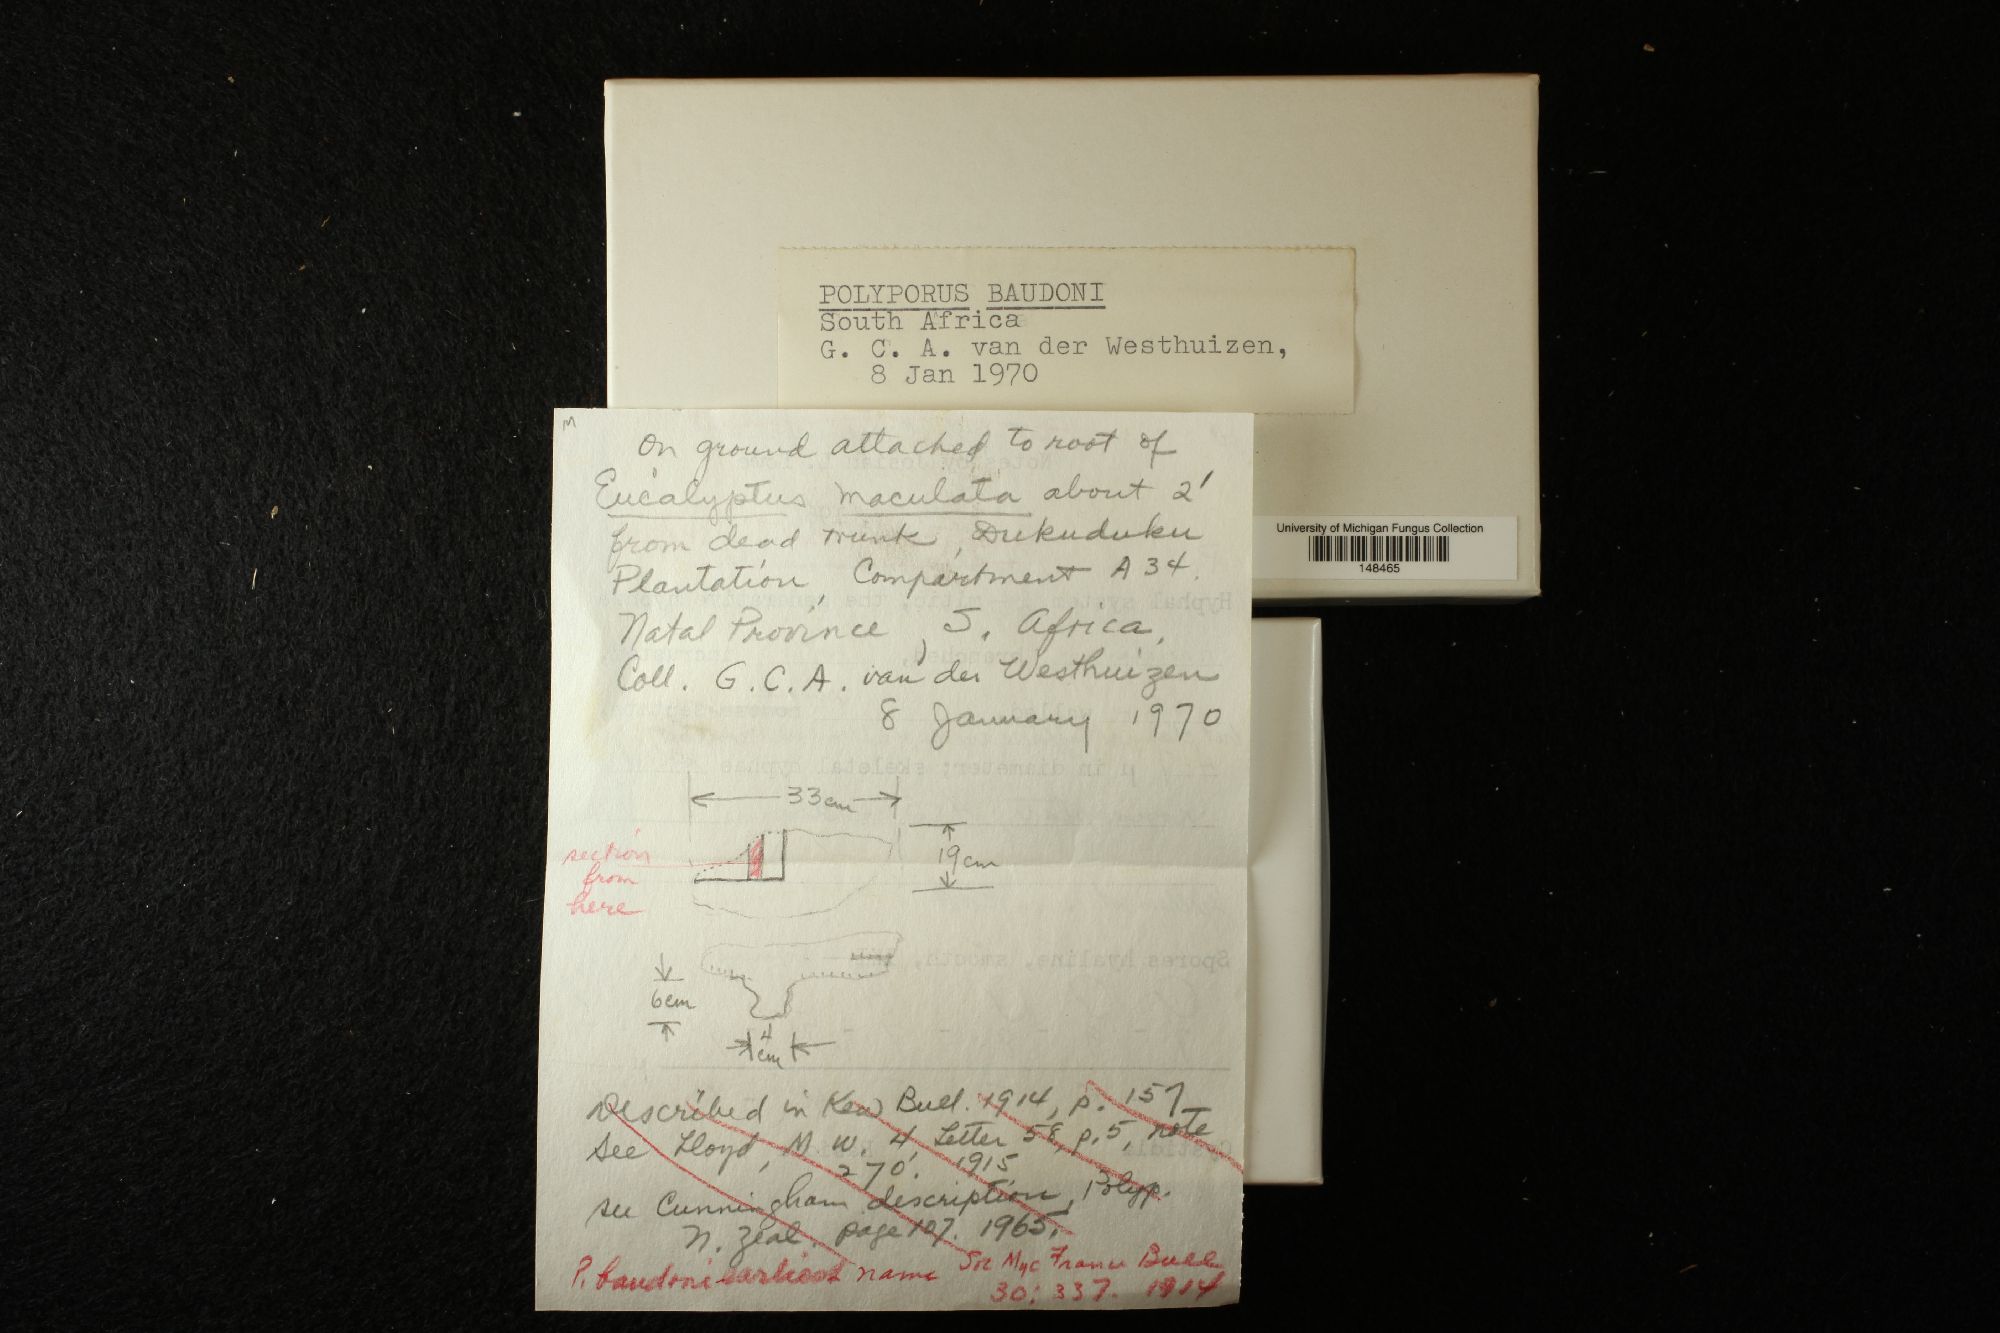 POLYPORUS BAUDONI
South Africa
G. C. A. van der Westhuizen,
8 Jan 1970
University of Michigan Fungus Collection
148465
M
On ground attached to root of
Eucalyptus maculata about 2'
from dead trunk, Dukuduku
Plantation, Compartment A 34.
Natal Province, S. Africa,
Coll. G.C.A. van der Westhuizen
8 January 1970
33cm
section
from
here
19cm
6cm
4
cm
Described in Kew Bull. 1914, p. 157
see Lloyd, M. W. 4, Letter 58, p.5, note
270. 1915
see Cunningham description, Polyp.
N. Zeal. page 107. 1965.
P. baudoni earliest name Soc Myc France Bull
30: 337. 1914